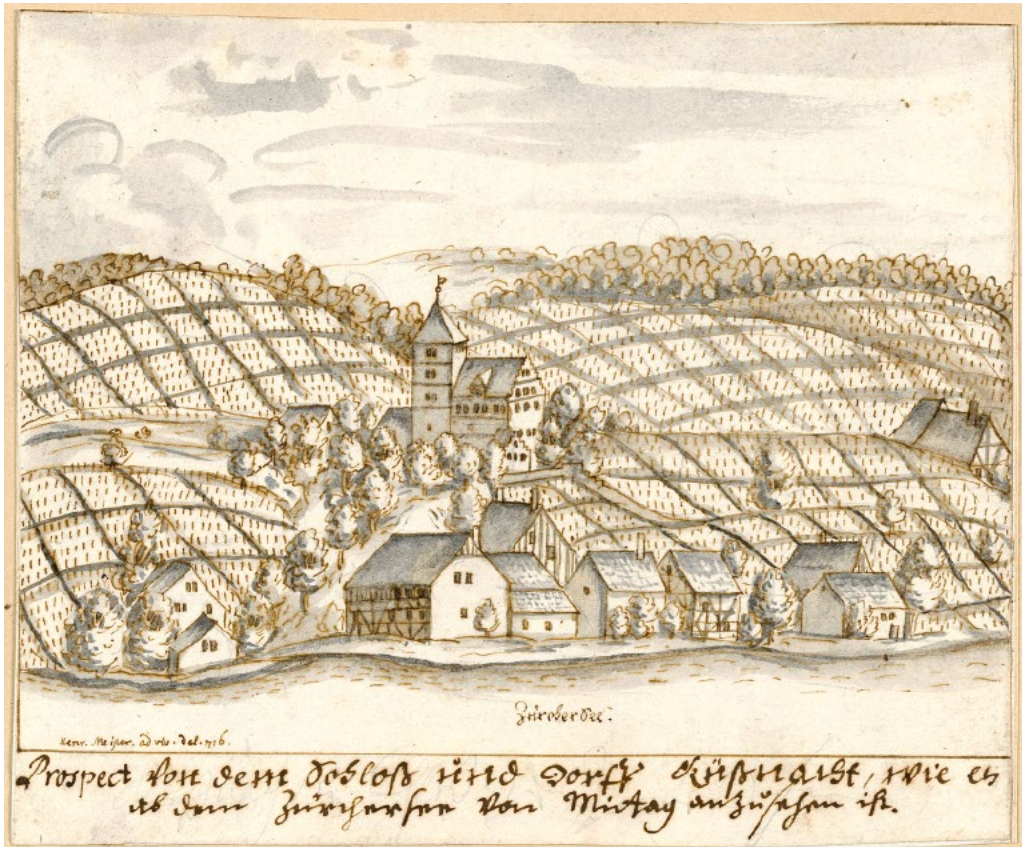 Zürcher See.
Henr. Meijer. ad viv. del. 1716.
Prospect von dem Schloß und Dorff Küßnacht, wie es
ab dem Zürchersee von Mitag anzusehen ist.